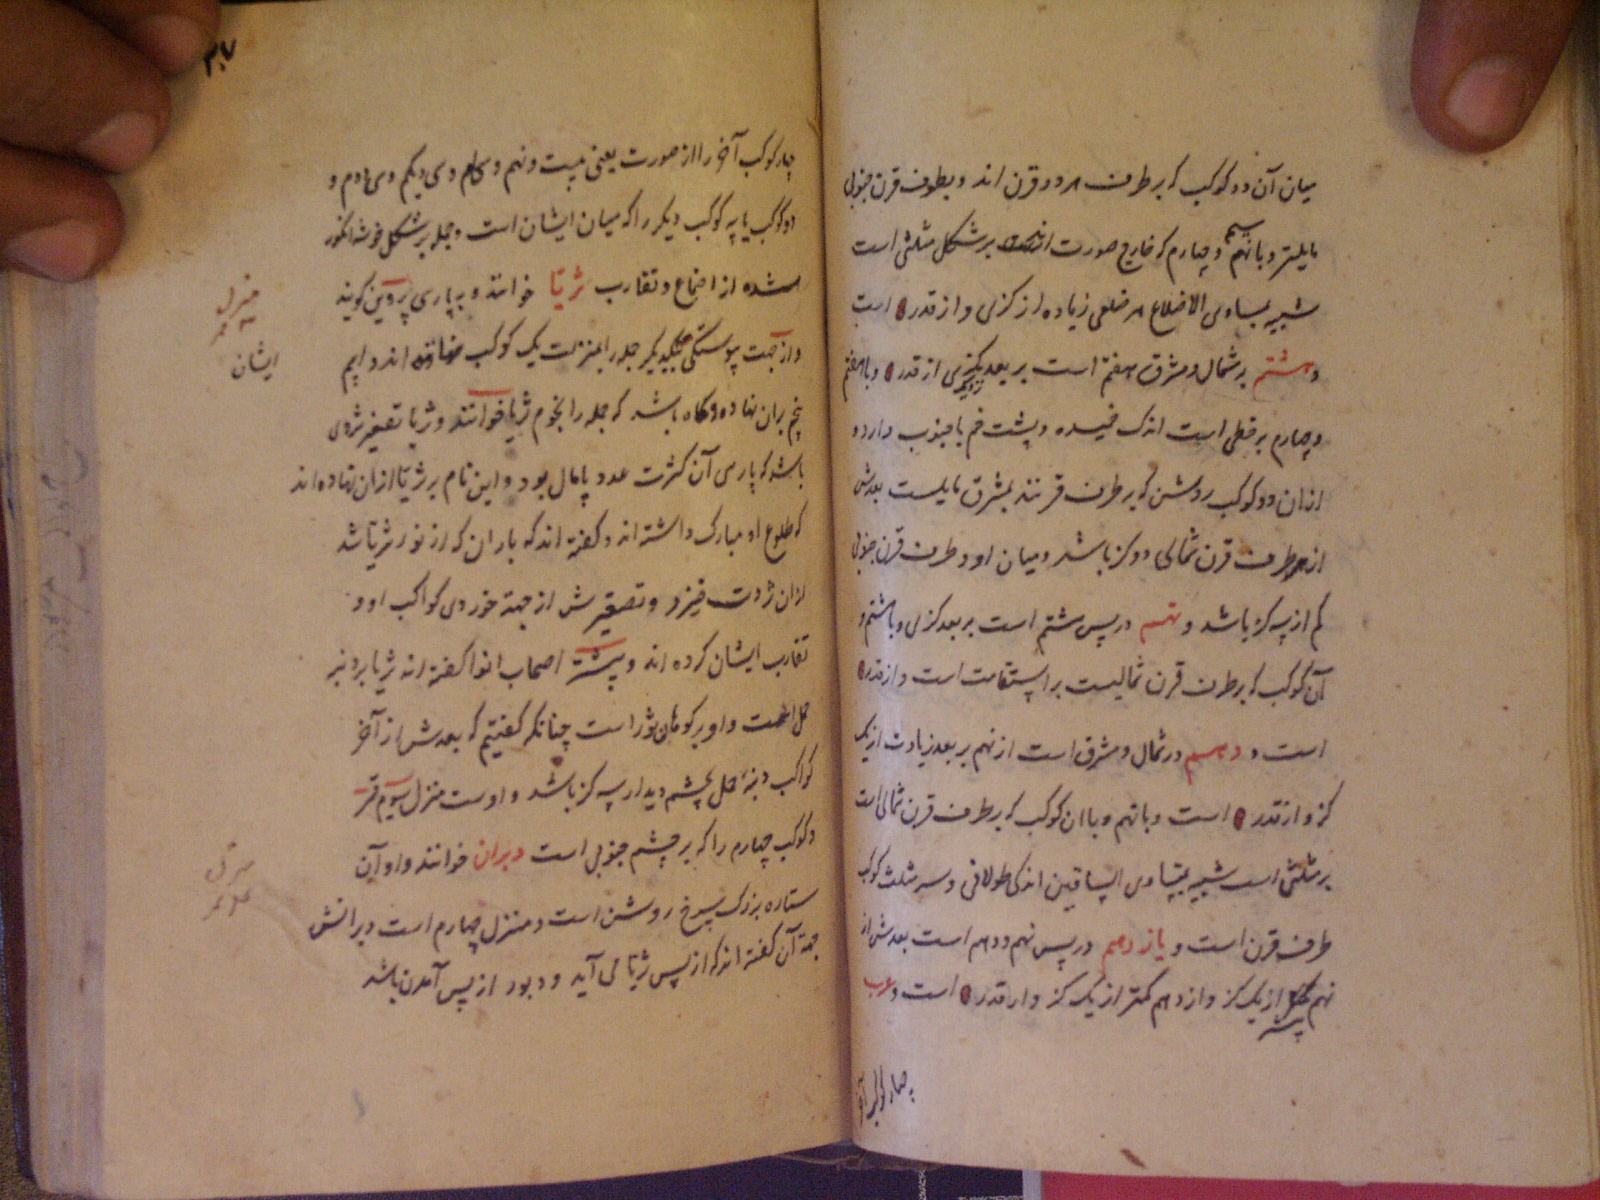 میان آن دو کوکب که بر طرف هر دو قرن اند و بطرف قرن جنوبی
مایلتر و با نهم و چهارم که خارج صورت بر شکل مثلثی است
شبیه بمتساوی الاضلاع هر ضلعی زیاده از کزی و از قدر ۵ است
و هشتم بر شمال و مشرق هفتم است بر بعد از قدر ۵ و با هفتم
و چهارم بر خطی است اندک خمیده و پشت خم با جنوب دارد و
ازان دو کوکب روشن که بر طرف قرنند بمشرق مایلست بعدش
از طرف قرن شمالی دو کز باشد و میان او و طرف قرن جنوبی
کم از سه کز باشد و نهم در پس هشتم است بر بعد کزی و با هشتم و
آن کوکب که بر طرف قرن شمالیست بر استقامت است و از قدر ۵
است و دهم در شمال و مشرق است از نهم بر بعد زیادت از یک
کز و از قدر ۵ است و با نهم و با آن کوکب که بر طرف قرن شمالی است
بر مثلثی است شبیه بمتساوی الساقین اندکی طولانی و سر مثلث کوکب
طرف قرن است و یازدهم در پس نهم و دهم است بعدش از
نهم از یک کز و از دهم کمتر از یک کز و از قدر ۵ است و عرب
چهار کوکب آخر
۳۰۷
چهار کوکب آخر را از صورت یعنی بیست و نهم و سی ام و سی و یکم و سی و دوم و
دو کوکب یا سه کوکب دیگر را که میان ایشان است و جمله بر شکل خوشه انکور
شده از اجتماع و تقارب ثریّا خوانند و بپارسی پروین کویند
و از جهت پیوستکی یکدیکر جمله را بمنزلت یک کوکب اند و اسم
نجم بران نهاده و کاه باشد که جمله را نجوم ثریا خوانند و ثریا تصغیر ثروی
باشد که پارسی آن کثرت عدد یا مال بود و این نام بر ثریا ازان نهاده اند
که طلوع او مبارک داشته اند و کفته اند که باران که از نوء ثریا باشد
ازان ثروت خیزد و تصغیرش از جهة خوردی کواکب او و
تقارب ایشان کرده اند و بیشتر اصحاب انوا کفته اند ثریا بر دنبه
حمل است و او بر کوهان ثور است چنانکه کفتیم که بعدش از آخر
کواکب دنبه حمل بچشم دیدار سه کز باشد و اوست منزل سیوم قمر
و کوکب چهارم را که بر چشم جنوبی است دبران خوانند و او آن
ستاره بزرک سرخ روشن است و منزل چهارم است و دبرانش
جهة آن کفته اند که از پس ثریا می آید و دبور از پس آمدن باشد
منزل
ایشان
منزل